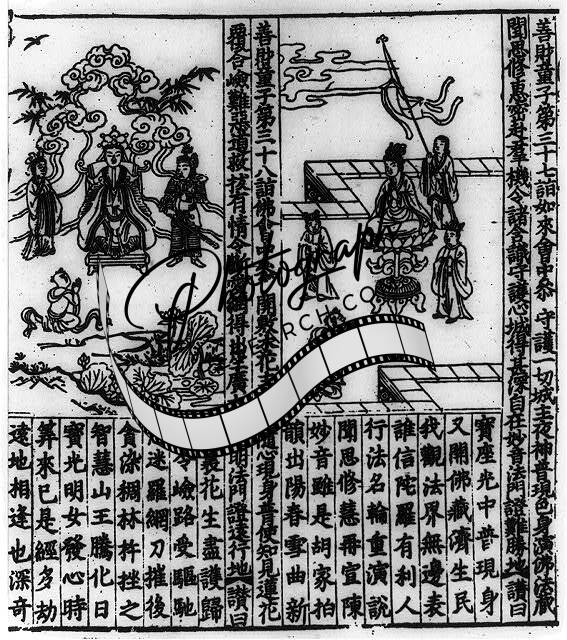 善財童子第三十七詣如來會中叅守護一切城主夜神普現色身演佛法藏
聞思修惠密赴羣機令諸含識守護心城得甚深自在妙音法門證難勝地 讚曰
寶座光中普現身
又開佛藏濟生民
我觀法界無邊表
誰信陀羅有利人
行法名輪重演說
聞思修慧冊宣陳
妙音雖是胡家拍
韻出陽春雪曲新
善財童子第三十八詣佛會 開敷 花 心現身普使知見蓮花
覆合嶮難惡道救拔有情令斷 得出生廣 明法門證遠行地 讚曰
花生盡護歸
嶮路受驅馳
迷羅網刀摧後
貪染稠林杵挫之
智慧山王騰化日
寶光明女發心時
筭來已是經多劫
遠地相逢也深奇
Photograph
RCH.CO